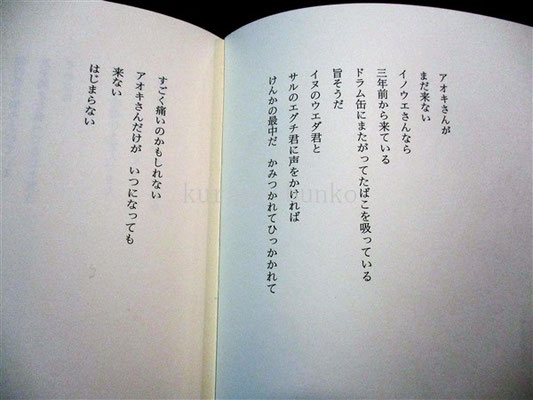 アオキさんが
まだ来ない
イノウエさんなら
三年前から来ている
ドラム缶にまたがってたばこを吸っている
旨そうだ
イヌのウエダ君と
サルのエグチ君に声をかければ
けんかの最中だ　かみつかれてひっかかれて
すごく痛いのかもしれない
アオキさんだけが　いつになっても
来ない
はじまらない